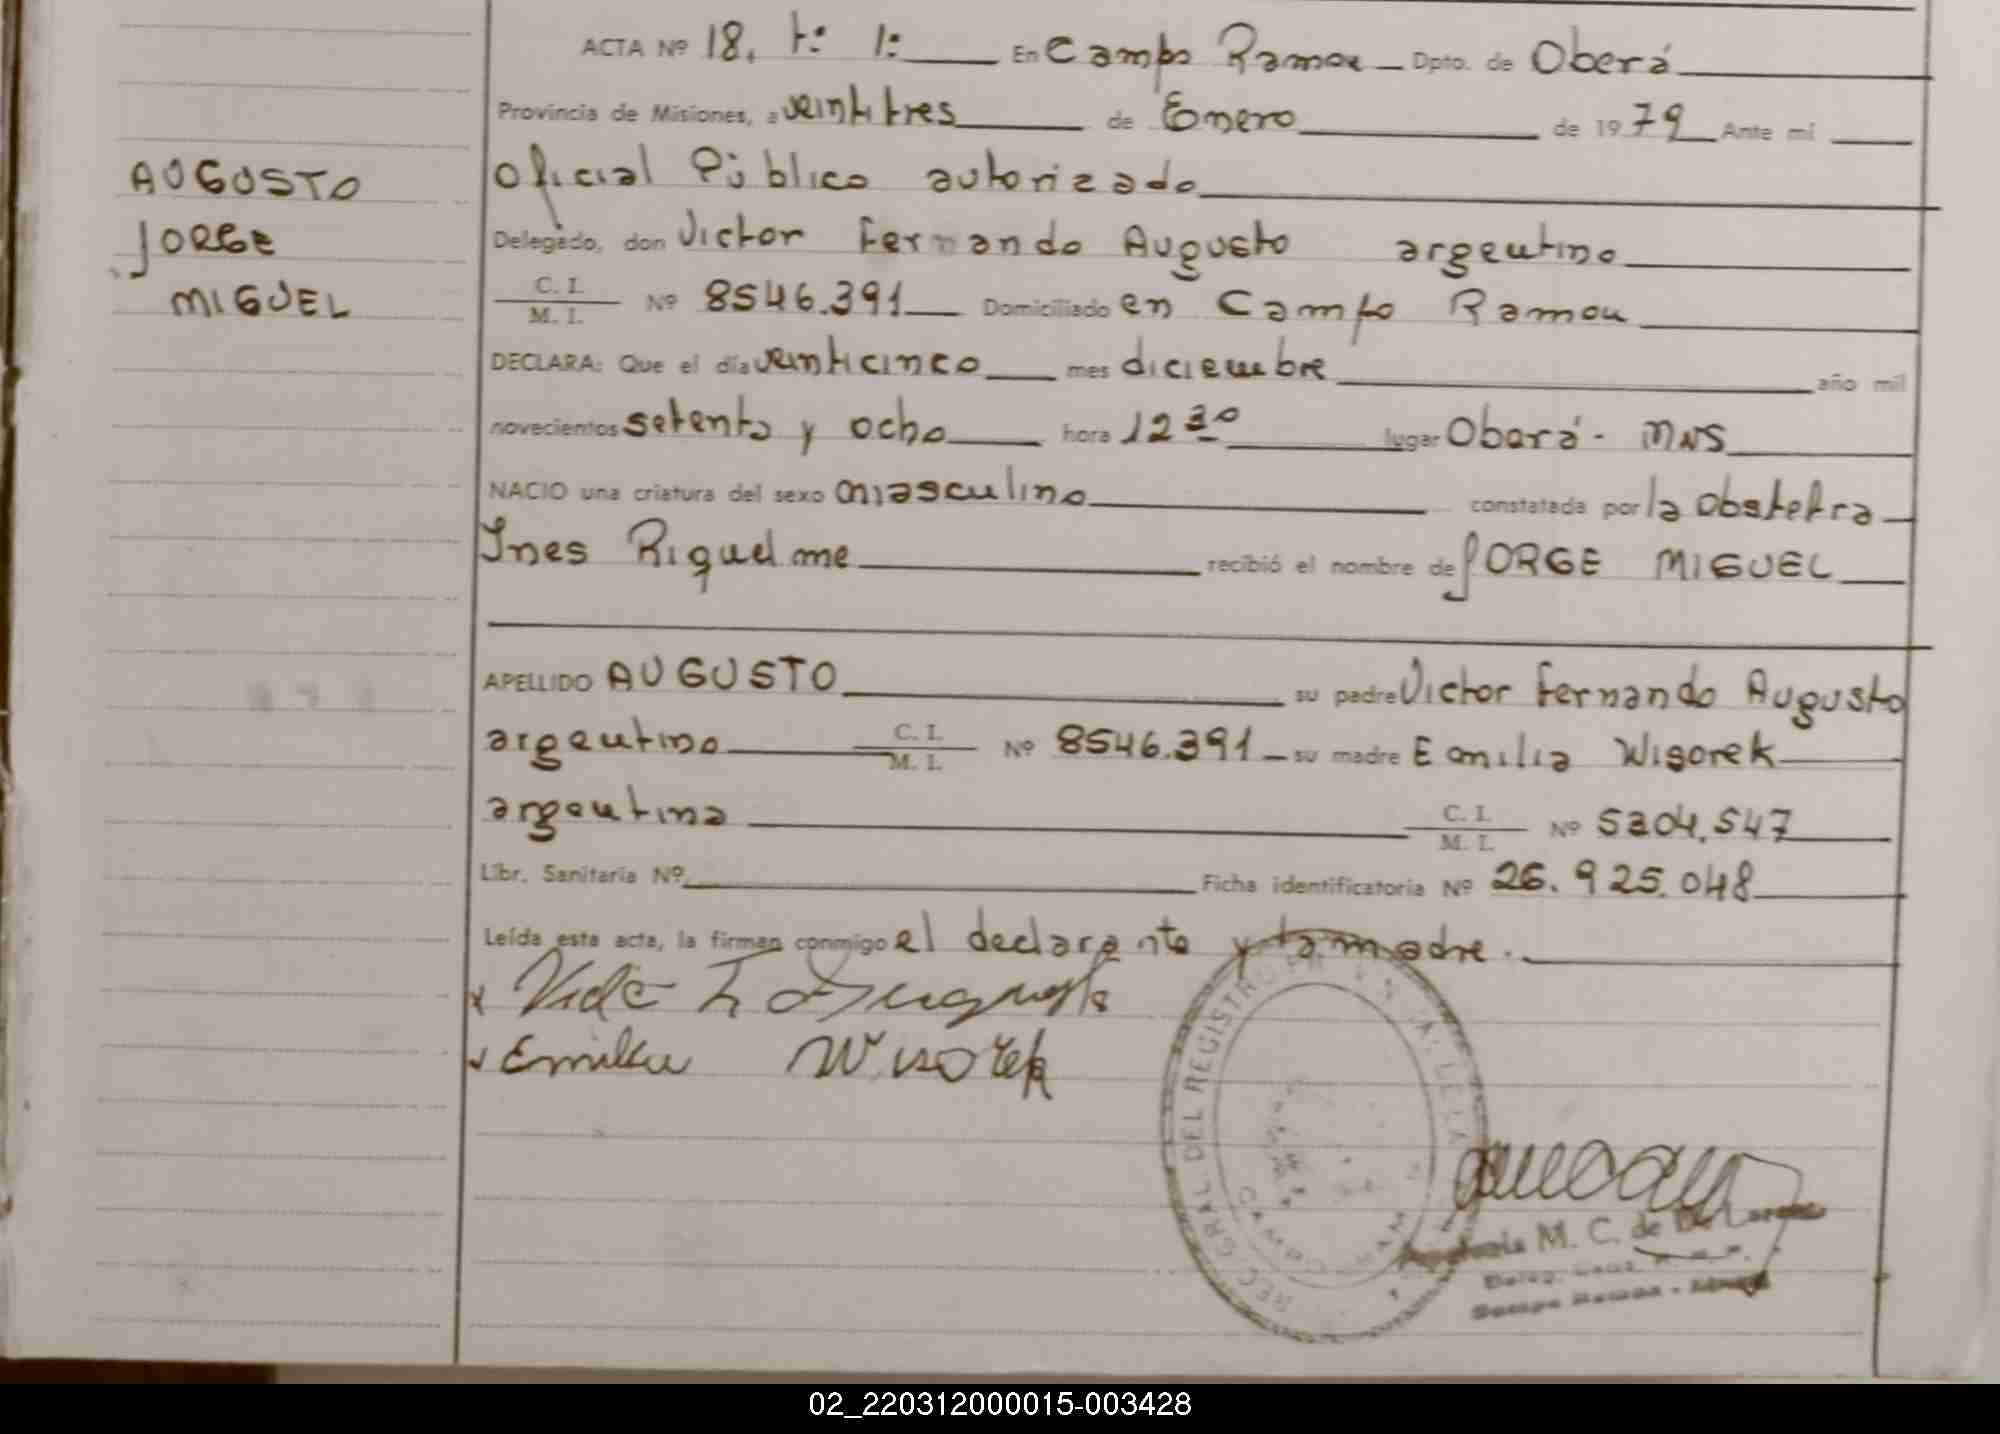 ACTA Nº 18. t: 1: En Campo Ramon Dpto. de Oberá
Provincia de Misiones, a veintitres de Enero de 1979 Ante mí
Oficial Público autorizado
AUGUSTO
JORGE
MIGUEL
Delegado, don Victor Fernando Augusto argentino
C. I.
M. I. Nº 8546.391 Domiciliado en Campo Ramon
DECLARA: Que el día veinticinco mes diciembre año mil
novecientos setenta y ocho hora 12 30 lugar Oberá - MNS
NACIO una criatura del sexo masculino constatada por la obstetra
Ines Riquelme recibió el nombre de JORGE MIGUEL
APELLIDO AUGUSTO su padre Victor Fernando Augusto
argentino C. I. M. I. Nº 8546.391 su madre Emilia Wisorek
argentina C. I. M. I. Nº 5204.547
Libr. Sanitaria Nº Ficha identificatoria Nº 26.925.048
Leída esta acta, la firman conmigo el declarante y la madre.
Emilia Wisorek
REC. GRAL. DEL REGISTRO
M. C. de
02_220312000015-003428